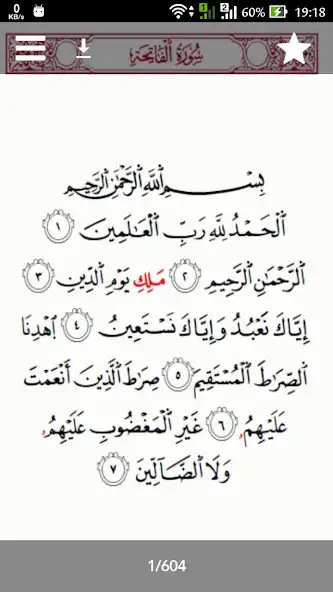 0 KB/s 1 2 60% 19:18
سُورَةُ ٱلْفَاتِحَةِ
بِسْمِ ٱللَّهِ ٱلرَّحْمَٰنِ ٱلرَّحِيمِ
ٱلْحَمْدُ لِلَّهِ رَبِّ ٱلْعَٰلَمِينَ ١
ٱلرَّحْمَٰنِ ٱلرَّحِيمِ ٢ مَلِكِ يَوْمِ ٱلدِّينِ ٣
إِيَّاكَ نَعْبُدُ وَإِيَّاكَ نَسْتَعِينُ ٤ ٱهْدِنَا
ٱلصِّرَٰطَ ٱلْمُسْتَقِيمَ ٥ صِرَٰطَ ٱلَّذِينَ أَنْعَمْتَ
عَلَيْهِمُۥ ٦ غَيْرِ ٱلْمَغْضُوبِ عَلَيْهِمُۥ
وَلَا ٱلضَّآلِّينَ ٧
1/604